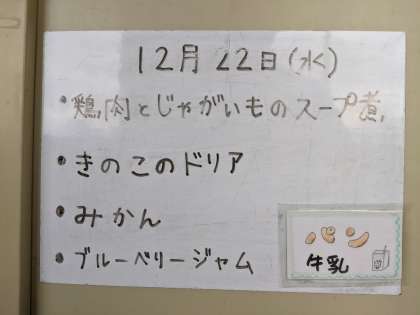 12月22日(水)
・鶏肉とじゃがいものスープ煮
・きのこのドリア
・みかん
・ブルーベリージャム
パン
牛乳